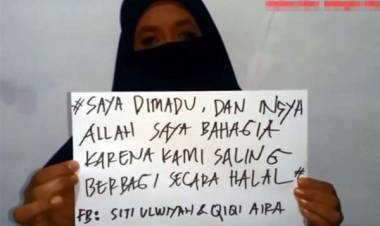 #SAYA DIMADU, DAN INSYA
ALLAH SAYA BAHAGIA
KARENA KAMI SALING
BERBAGI SECARA HALAL#
FB: SITI ULWIYAH & QIQI AIRA